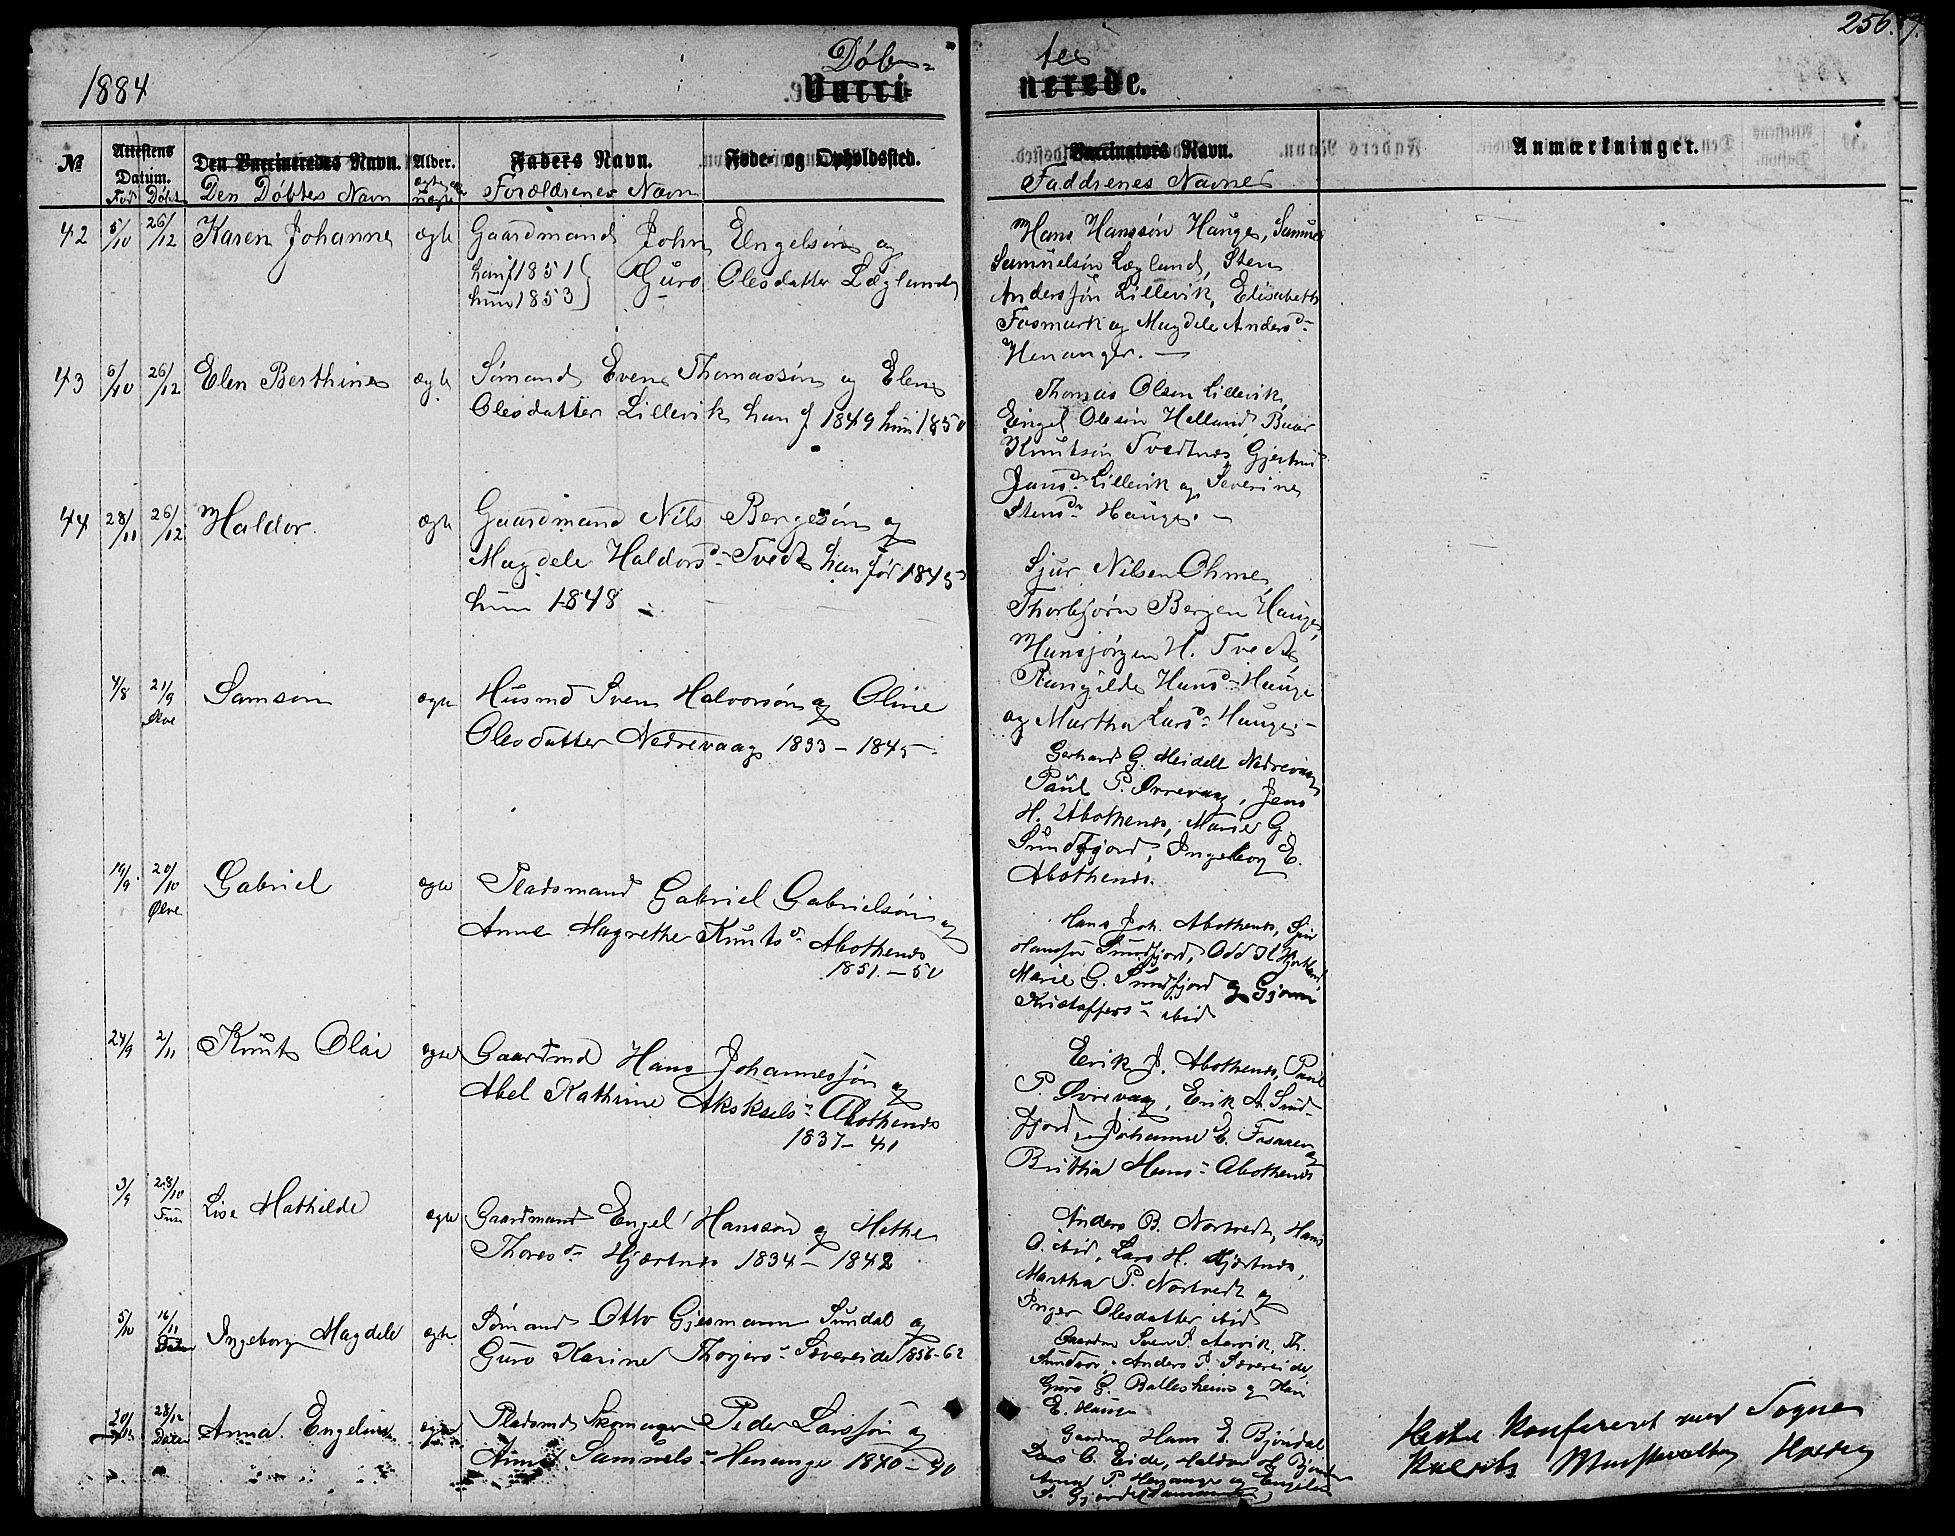 1884
Døb= tes
256.
Vacci= nerede.
№
Attestens Datum.
Den Vaccineredes Navn.
Alder.
Faders Navn.
Føde- og Opholdssted.
Vaccinators Navn.
Anmærkninger.
Fød Døbt
Den Døbtes Navn
ægte
Forældrenes Navn
Faddrenes Navne
42 5/10 26/12 Karen Johanne ægte Gaardmand John Engelsøn og
han f 1851 Guro Olesdatter Løglund
hun 1853
Hans Hanssøn Hauge, Samuel
Samuelsøn Løglund, Sten
Anderssøn Lillevik, Elisabeth
Fosmark og Magdele Andersd-
Henanger. -
43 6/10 26/12 Elen Berthine ægte Sømand Even Thomassøn og Elen
Olesdatter Lillevik han f 1849 hun 1850
Thomas Olsen Lillevik,
Engel Olesøn Helland, Baar
Knutsøn Tvedtnes, Gjertrud
Jansd- Lillevik og Severine
Stensd- Hauge. -
44 28/11 26/12 Haldor. ægte Gaardmand Nils Bergesøn og
Magdele Haldorsd- Tvedt han før 1845
hun 1848
Sjur Nilsen Ohme,
Thorbjørn Bergen Hauge,
Hansjørgen H. Tvedt,
Rangilde Hansd- Hauge
og Martha Larsd- Hauge. -
4/8 21/9 Ølve Samson ægte Husmd Sven Halvorsøn og Oline
Olesdatter Nedrevaag 1833 - 1845
Gerhard G. Meidell Nedrevaag
Paul P. Øvrevaag, Jens
H. Abothenes, Marie G.
Sundfjord, Ingeborg E.
Abothenes.
19/9 20/10 Ølve Gabriel ægte Pladsmand Gabriel Gabrielsøn og
Anne Magrethe Knutsd- Abothenes
1851. - 50
Hans Joh. Abothenes, Sjur
Hanssøn Sundfjord, Odd
Marie G. Sundfjord og
Kristoffersd- ibid
24/9 2/11 Knut Olai ægte Gaardmd Hans Johannessøn og
Abel Kathrine Aksksels- Abothenes
1837 - 41
Erik J. Abothenes, Paul
P. Øvrevaag, Erik A. Sund-
fjord, Johanne E. og
Brithia Hans- Abothenes
3/9 28/10 Fuse Lise Mathilde ægte Gaardmand Engel Hanssøn og Methe
Thoresd- Hjærtnes 1834 - 1842
Anders B. Nortvedt, Hans
O. ibid, Lars H. Hjærtnes,
Martha P. Nortvedt og
Inger Olesdatter ibid
5/10 16/11 Ingeborg Magdele ægte Sømand Otto Gjesmann Sundal og
Guro Karine Thorgers- Sævereide 1856-62
Gaardm Sven J. Aarvik, Th.
Sundvor, Anders P. Sævereide,
Guro G. Ballesheim og
E. Hauge
28/12 Anna Engeline ægte Pladsmd Skomager Peder Larssøn og
Anna Samuels- Henanger 1840 - 40
Gaardm Hans E. Bjøndal
Lars O. Eide, Haldor H.
Anna P. Henanger og Engeline
Heste Konfereret med Sogne